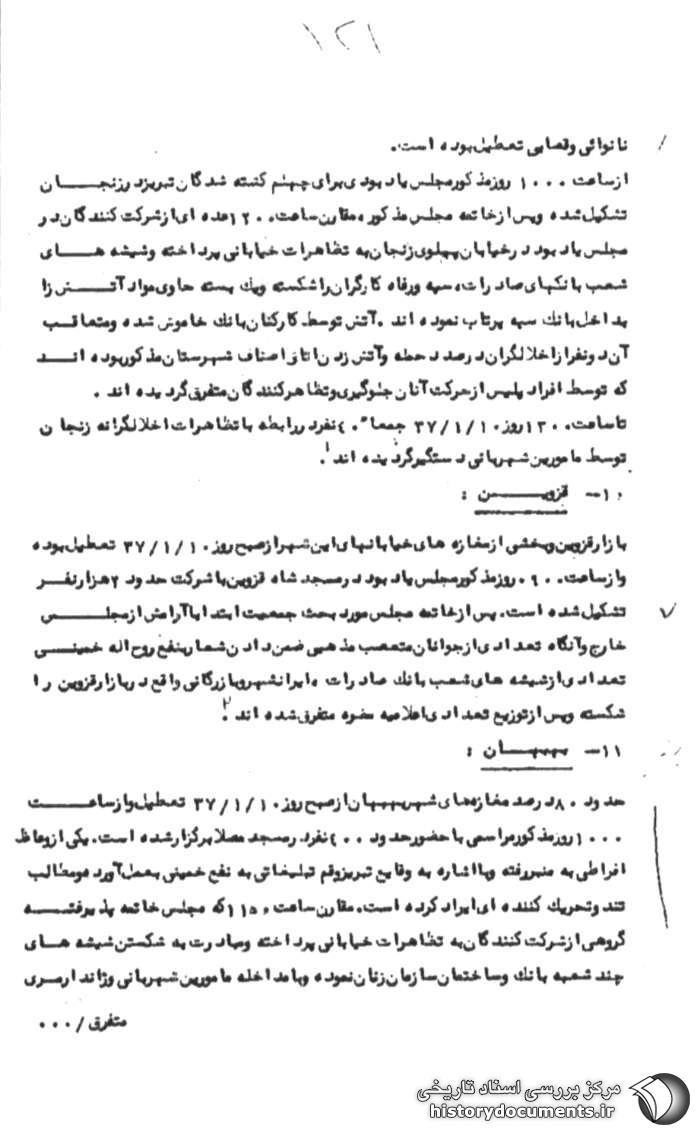 ۱۲۱
نانوائی وقصابی تعطیل بوده است.
ازساعت ۱۰۰۰ روزمذکورمجلس یاد بودی برای چهلم کشته شدگان تبریزدرزنجـــان
تشکیل شده وپس ازخاتمه مجلس مذکور، مقارن ساعت ۱۲۰۰ عده ای ازشرکت کنندگان در
مجلس یاد بود درخیابان پهلوی زنجان به تظاهرات خیابانی پرداخته وشیشه هــای
شعب بانکهای صادرات، سپه ورفاه کارگران راشکسته ویك بسته حاوی مواد آتــش زا
بداخل بانك سپه پرتاب نموده اند .آتش توسط کارکنان بانك خاموش شده ومتعاقب
آن دونفرازاخلالگران درصدد حمله وآتش زدن اتاق اصناف شهرستان مذکوربوده انــد
که توسط افراد پلیس ازحرکت آنان جلوگیری وتظاهرکنندگان متفرق گردیده اند .
تاساعت ۱۳۰۰ روز ۳۷/۱/۱۰ جمعا" ۴۰ نفردررابطه باتظاهرات اخلالگرانه زنجان
توسط مامورین شهربانی دستگیرگردیده اند ۱.
۱۰- قزویــــن :
بازارقزوین وبخشی ازمغازه های خیابانهای این شهرازصبح روز ۳۷/۱/۱۰ تعطیل بوده
وازساعت ۰۹۰۰ روزمذکورمجلس یاد بود درمسجد شاه قزوین باشرکت حدود ۲هزارنفــر
تشکیل شده است. پس ازخاتمه مجلس مورد بحث جمعیت ابتدا باآرامش ازمجلـــس
خارج وآنگاه تعدادی ازجوانان متعصب مذهبی ضمن دادن شعاربنفع روح اله خمینـــی
تعدادی ازشیشه های شعب بانك صادرات ،ایرانشهروبازرگانی واقع دربازارقزوین را
شکسته وپس ازتوزیع تعدادی اعلامیه مضره متفرق شده اند ۲.
۱۱- بهبهــــان :
حدود ۸۰درصد مغازه های شهربهبهان ازصبح روز ۳۷/۱/۱۰ تعطیل وازساعـــــت
۱۰۰۰ روزمذکورمراسمی باحضورحدود ۴۰۰ نفردرمسجد مصلا برگزارشده است. یکی ازوعاظ
افراطی به منبررفته وبااشاره به وقایع تبریزوقم تبلیغاتی به نفع خمینی بعمل آورد ومطالب
تند وتحریك کننده ای ایراد کرده است. مقارن ساعت ۱۱۵۰ که مجلس خاتمه پذیرفتـــه
گروهی ازشرکت کنندگان به تظاهرات خیابانی پرداخته ومبادرت به شکستن شیشه هــای
چند شعبه بانك وساختمان سازمان زنان نموده وبامداخله مامورین شهربانی وژاندارمری
متفرق /۰۰۰
مرکز بررسی اسناد تاریخی
historydocuments.ir